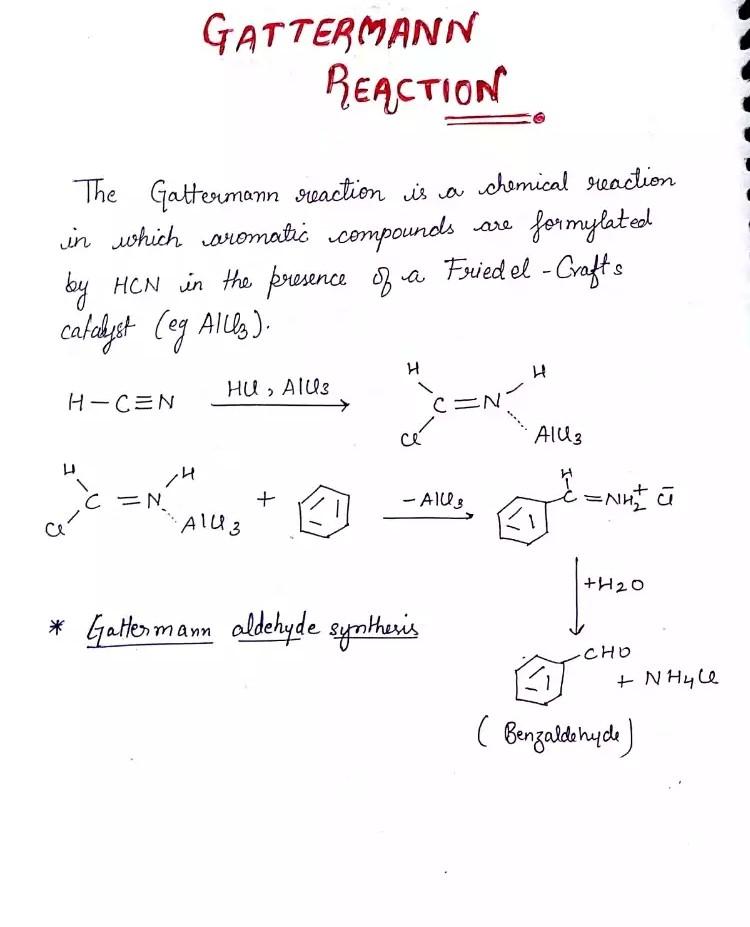 GATTERMANN
REACTION
The Gattermann reaction is a chemical reaction
in which aromatic compounds are formylated
by HCN in the presence of a Friedel-Crafts
catalyst (eg AlCl3).
H-C≡N HCl, AlCl3 H Cl C=N H AlCl3
H Cl C=N H AlCl3 + -AlCl3 H C=NH2+ Cl-
+H2O
* Gattermann aldehyde synthesis
CHO
+ NH4Cl
(Benzaldehyde)